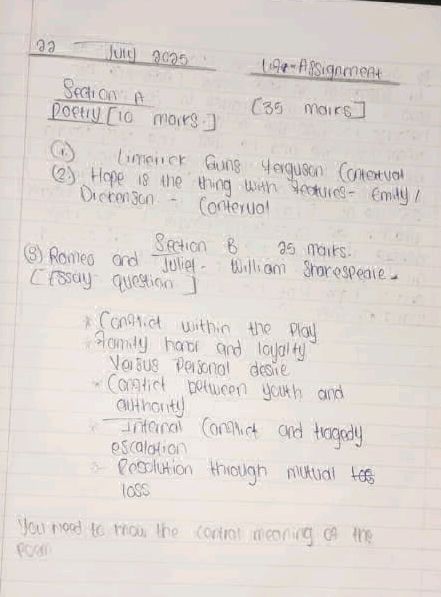 22 July 2025
Lit-Assignment
Section A
Poetry [10 marks.] [35 marks]
(1) Limerick Guns Yerguson Contextual
(2) Hope is the thing with Feactures - Emily
Dickenson - Conterual
Section B 25 marks.
(3) Romeo and Juliet - William Sharespeare.
[Essay question]
* Conflict within the play
* Family honor and loyalty
Versus Personal desire
* Conflict between youth and
authority
* Internal Conflict and tragedy
escalation
* Resolution through mutual
loss
You need to know the central meaning of the
poem